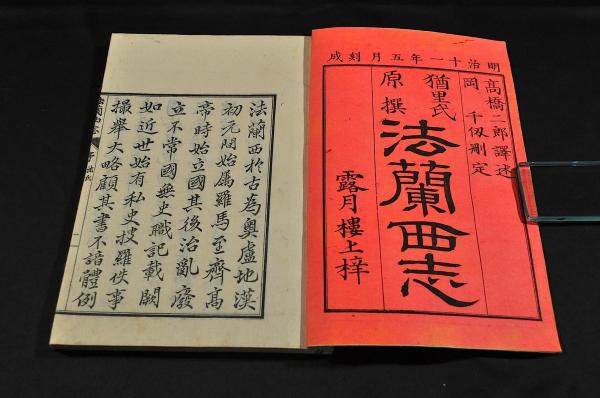 明治十一年五月刻成
高橋二郎譯述
岡千仭刪定
猶里氏
原撰
法蘭西志
露月樓上梓
法蘭西於古為奧盧地漢
初元間始屬羅馬至齊高
帝時始立國其後治亂廢
立不常國無史職記載闕
如近世始有私史搜羅佚事
撮舉大略顧其書不諳體例